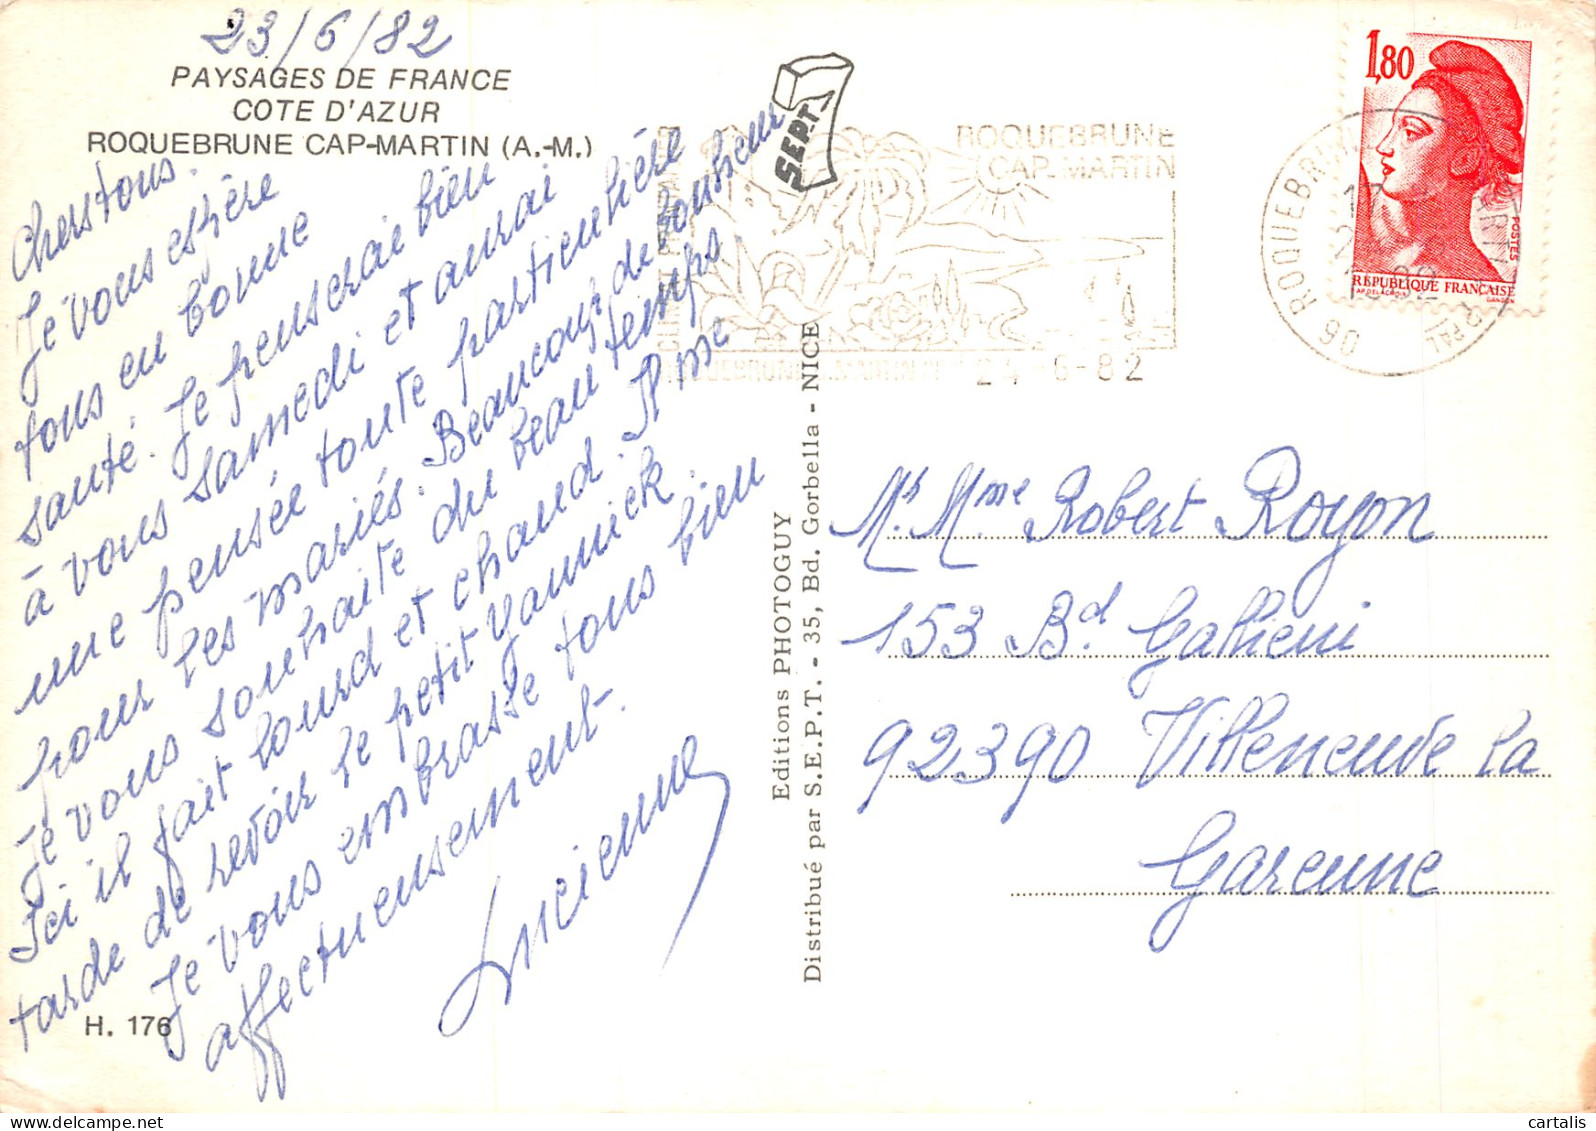 23/6/82
PAYSAGES DE FRANCE
COTE D'AZUR
ROQUEBRUNE CAP-MARTIN (A.-M.)
Cherstous.
Je vous espère
tous en bonne
santé. Je penserai bien
à vous samedi et aurai
une pensée toute particulière
pour les mariés. Beaucoup de bonheur
Je vous souhaite du beau temps
Ici il fait lourd et chaud. Il me
tarde de revoir le petit yannick.
Je vous embrasse tous bien
affectueusement.
Lucienne
H. 176
SEPT
Editions PHOTOGUY
Distribué par S.E.P.T. - 35, Bd. Gorbella - NICE
ROQUEBRUNE
CAP-MARTIN
24-6-82
06 ROQUEBRUNE
1,80
POSTES
RÉPUBLIQUE FRANÇAISE
AP. DELACROIX
GANDON
Mr. Mme Robert Royon
153 Bd Gallieni
92390 Villeneuve la
Garenne
cartalis